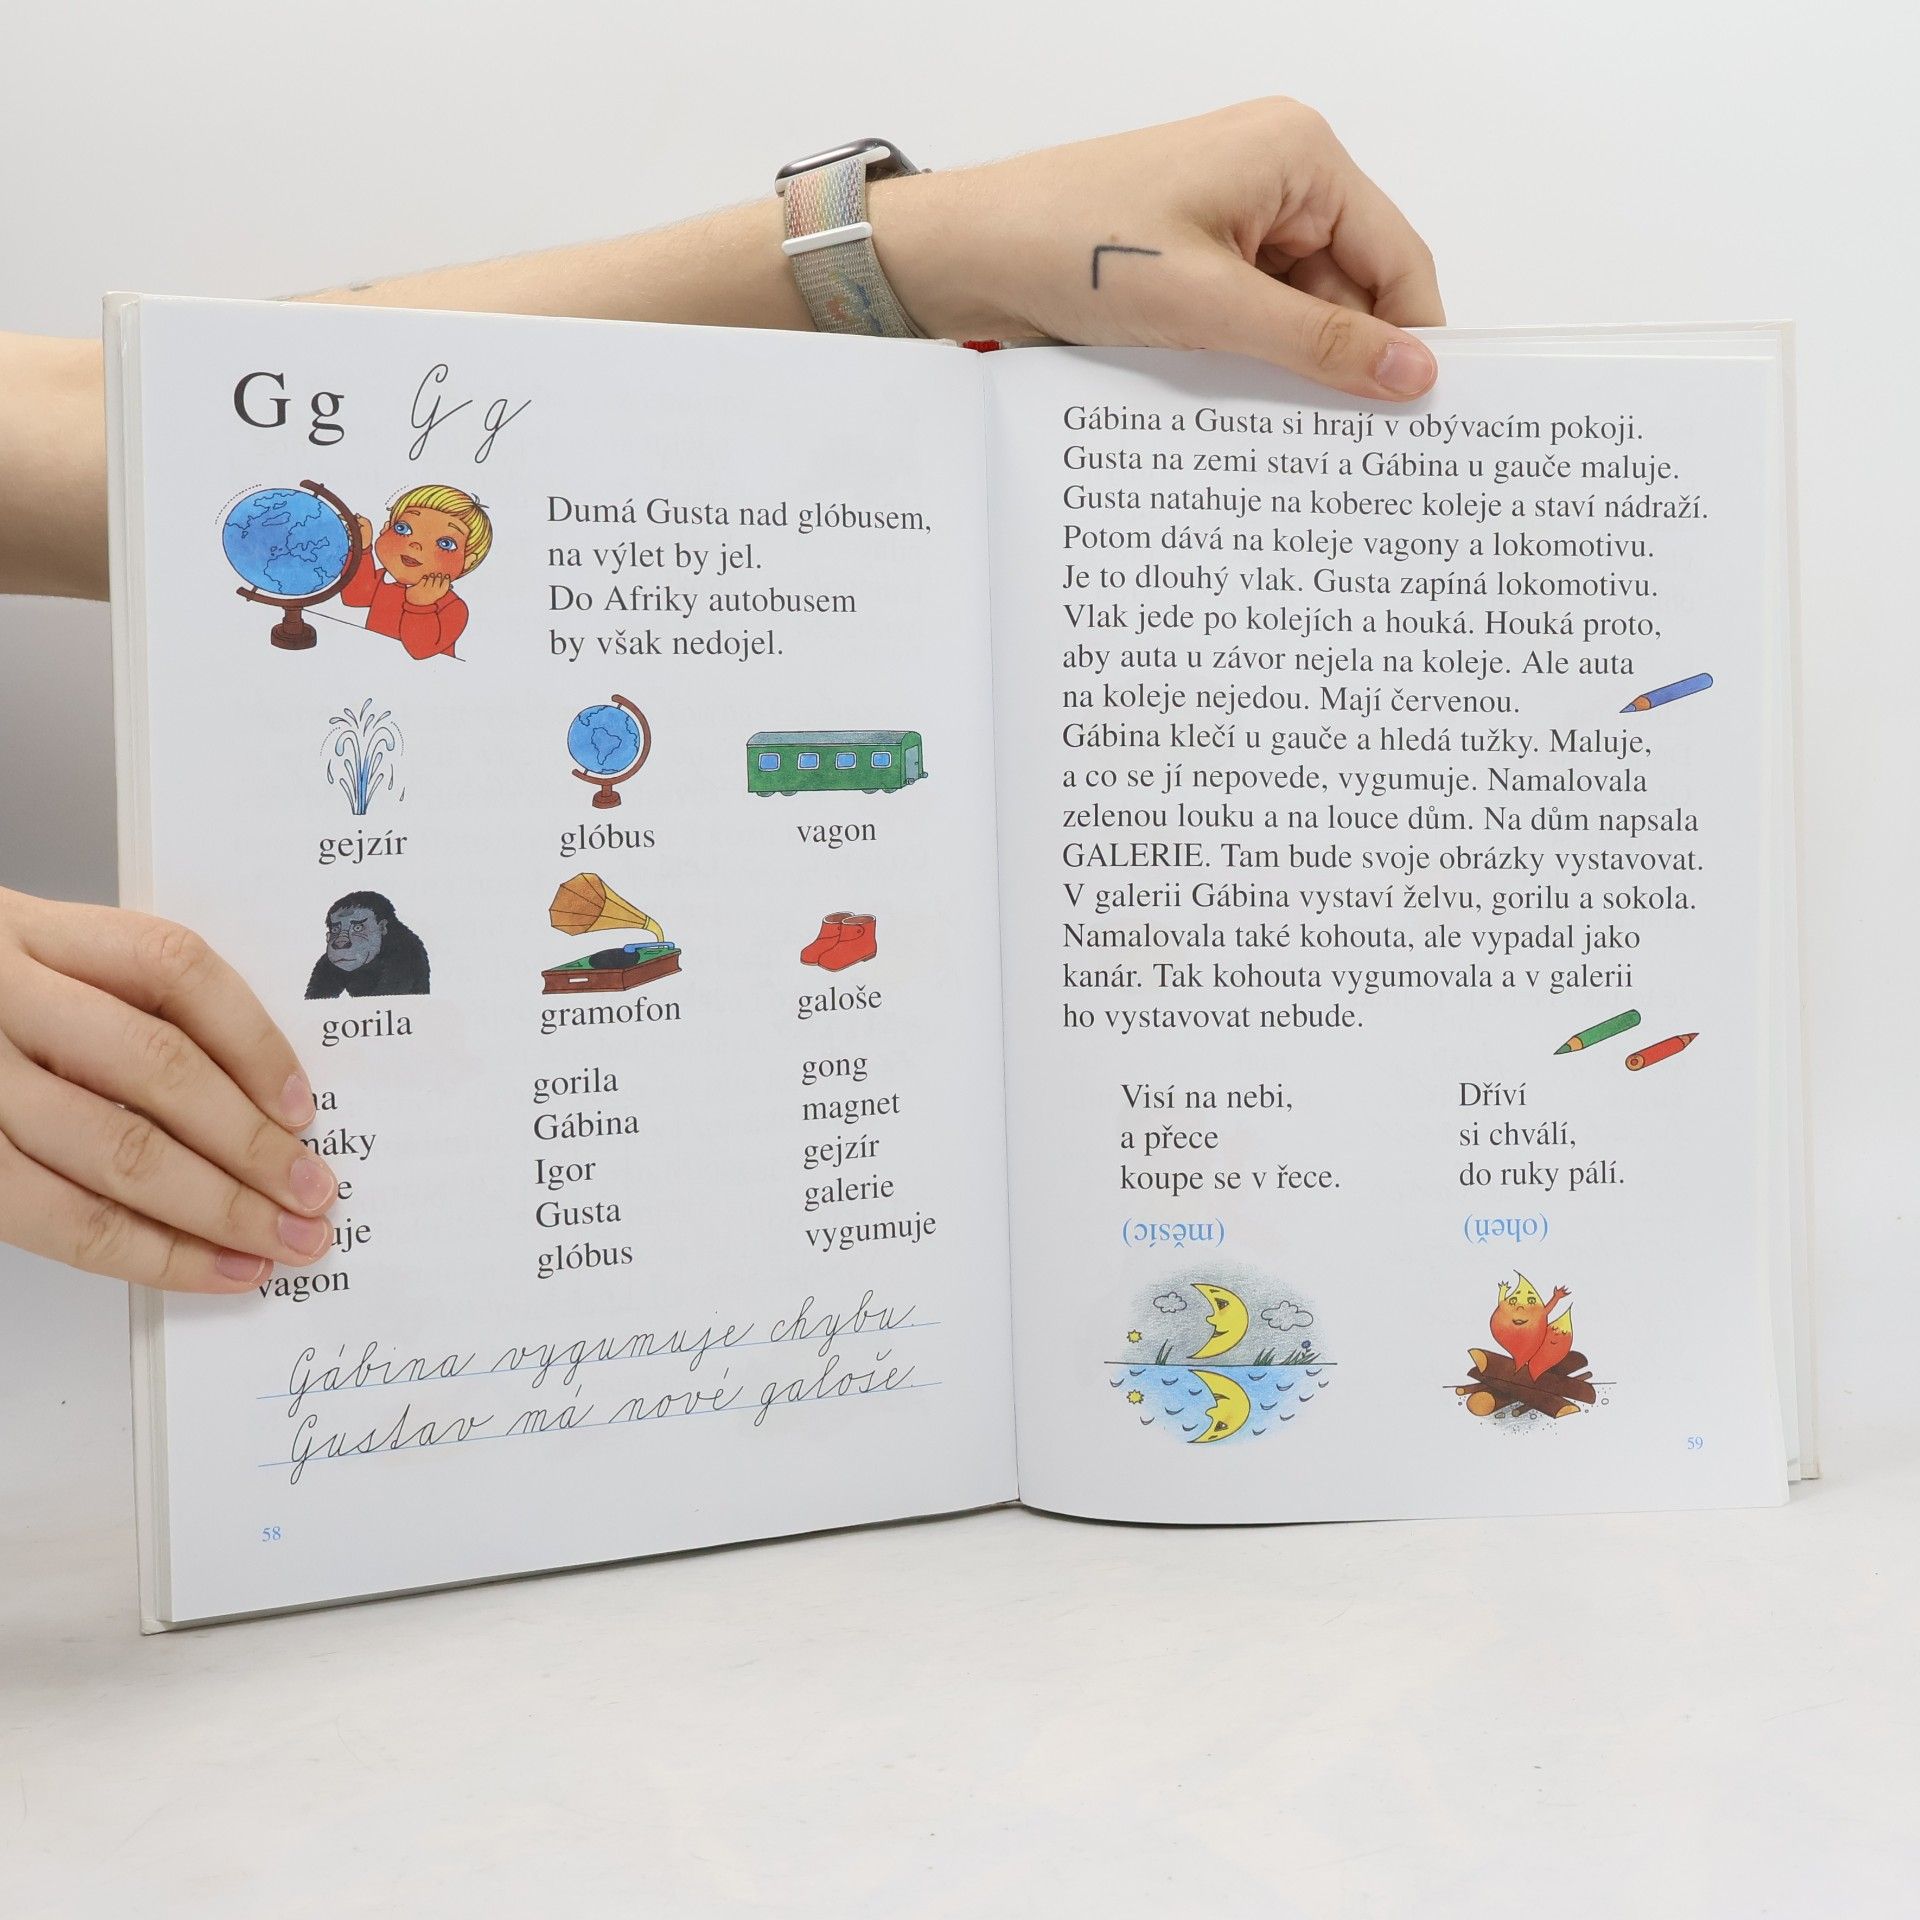 G g G g
Dumá Gusta nad glóbusem,
na výlet by jel.
Do Afriky autobusem
by však nedojel.
gejzír
glóbus
vagon
gorila
gramofon
galoše
vagon
gorila
Gábina
Igor
Gusta
glóbus
gong
magnet
gejzír
galerie
vygumuje
Gábina vygumuje chybu.
Gustav má nové galoše.
58
Gábina a Gusta si hrají v obývacím pokoji.
Gusta na zemi staví a Gábina u gauče maluje.
Gusta natahuje na koberec koleje a staví nádraží.
Potom dává na koleje vagony a lokomotivu.
Je to dlouhý vlak. Gusta zapíná lokomotivu.
Vlak jede po kolejích a houká. Houká proto,
aby auta u závor nejela na koleje. Ale auta
na koleje nejedou. Mají červenou.
Gábina klečí u gauče a hledá tužky. Maluje,
a co se jí nepovede, vygumuje. Namalovala
zelenou louku a na louce dům. Na dům napsala
GALERIE. Tam bude svoje obrázky vystavovat.
V galerii Gábina vystaví želvu, gorilu a sokola.
Namalovala také kohouta, ale vypadal jako
kanár. Tak kohouta vygumovala a v galerii
ho vystavovat nebude.
Visí na nebi,
a přece
koupe se v řece.
(měsíc)
Dříví
si chválí,
do ruky pálí.
(oheň)
59